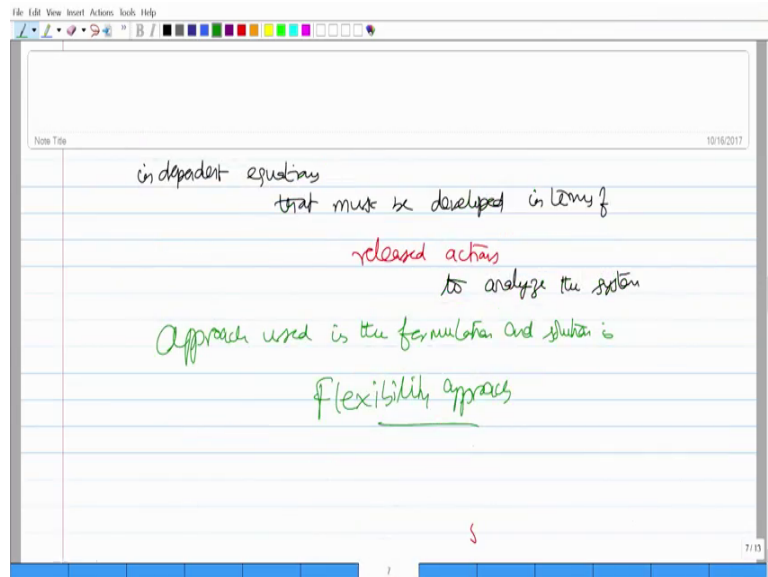 File Edit View Insert Actions Tools Help
B I
Note Title
10/16/2017
independent equations
that must be developed in terms of
released actions
to analyze the system
Approach used in the formulation and solution is
Flexibility approach
S
7/13
7